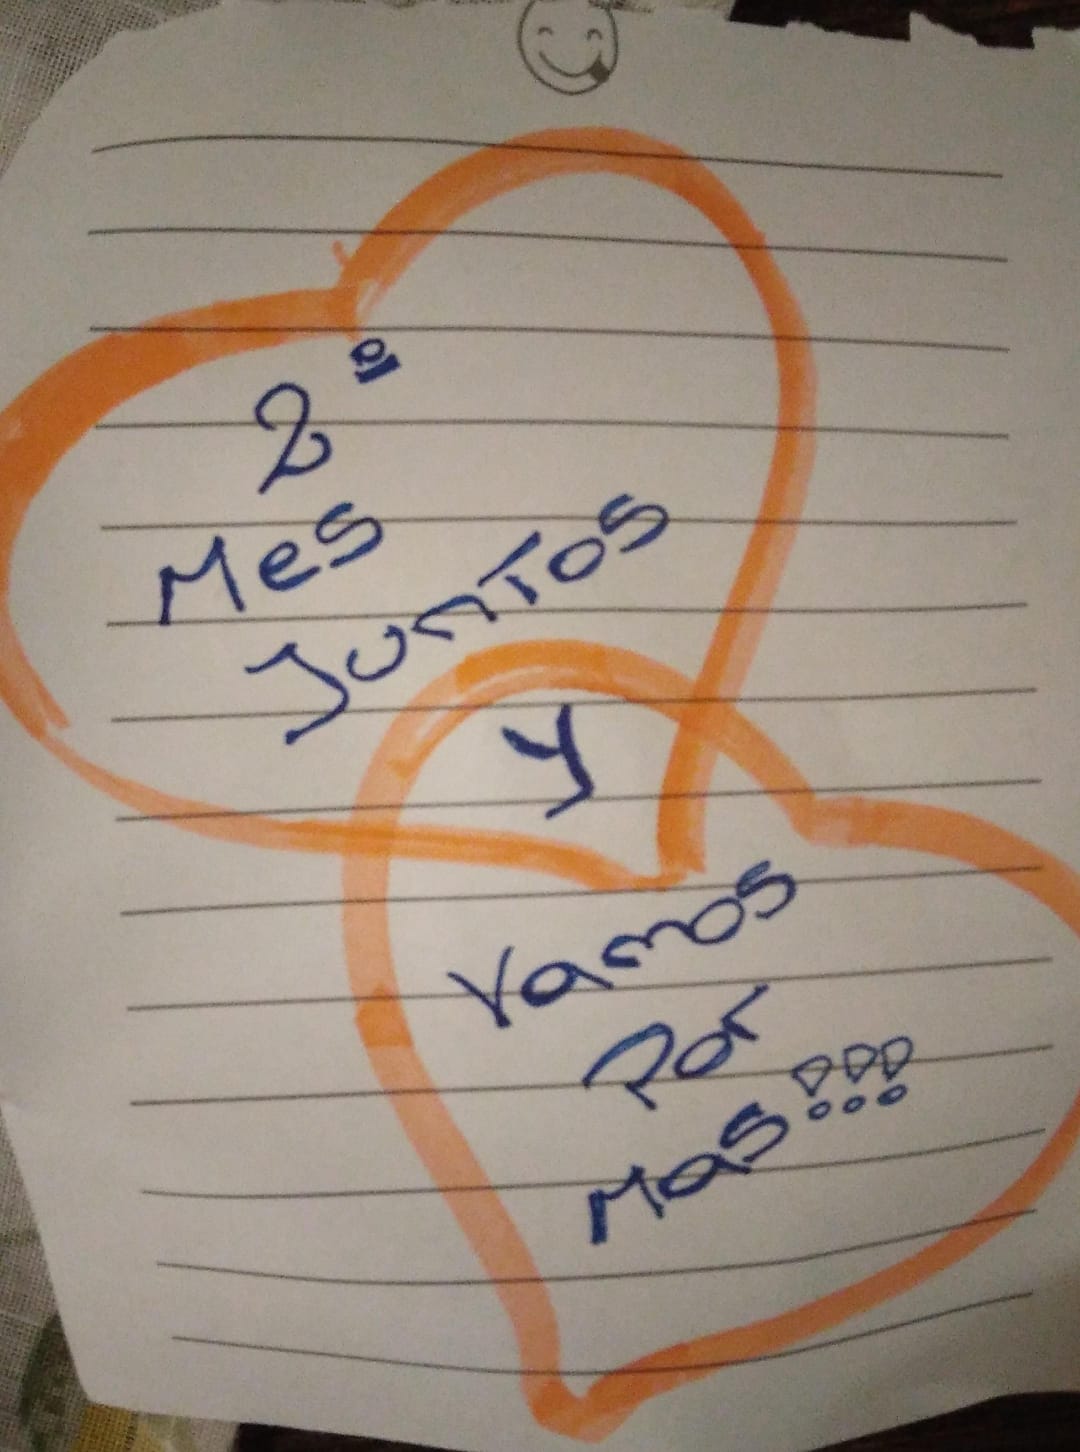 2º
Mes
Juntos
y
Vamos
Por
Mas!!!